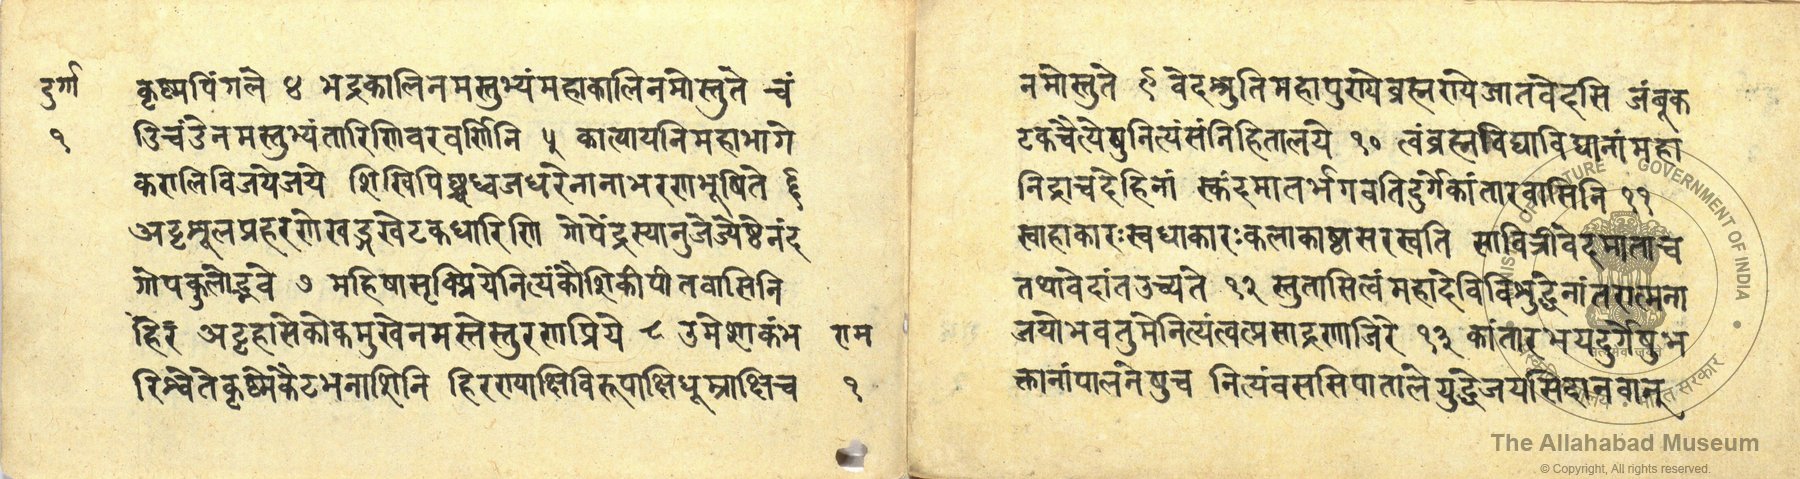 दुर्गा
१
कृष्मपिंगले ४ भद्रकालिनमस्तुभ्यंमहाकालिनमोस्तुते चं
डिचंडेनमस्तुभ्यंतारिणिवरवर्णिनि ५ कात्यायनिमहाभागे
करालिविजयेजये शिखिपिछ्रध्वजधरेनानाभरणभूषिते ६
अट्टशूलप्रहरणेखड्गखेटकधारिणि गोपेंद्रस्यानुजेज्येष्ठेनंद
गोपकुलोद्भवे ७ महिषासृक्प्रियेनित्यंकौशिकीपीतवासिनि
अट्टहासेकोकमुखेनमस्तेस्तुरणप्रिये ८ उमेशाकंभ
रिश्वेतेकृष्मेकैटभनाशिनि हिरण्याक्षिविरूपाक्षिधूम्राक्षिच
राम
१
नमोस्तुते ९ वेदश्रुतिमहापुण्येब्रह्मण्येजातवेदसि जंबूक
टकचैत्येषुनित्यंसंनिहितालये १० त्वंब्रह्मविद्याविद्यानांमहा
निद्राचदेहिनां स्कंदमातर्भगवतिदुर्गेकांतारवासिनि ११
स्वाहाकारःस्वधाकारःकलाकाष्ठासरस्वति सावित्रीवेदमाताच
तथावेदांतउच्यते १२ स्तुतासित्वंमहादेविविशुद्धेनांतरात्मना
जयोभवतुमेनित्यंत्वत्प्रसादाद्रणाजिरे १३ कांतारभयदुर्गेषुभ
क्तानांपालनेषुच नित्यंवससिपातालेयुद्धेजयसिदानवान्
GOVERNMENT OF INDIA
The Allahabad Museum
© Copyright, All rights reserved.